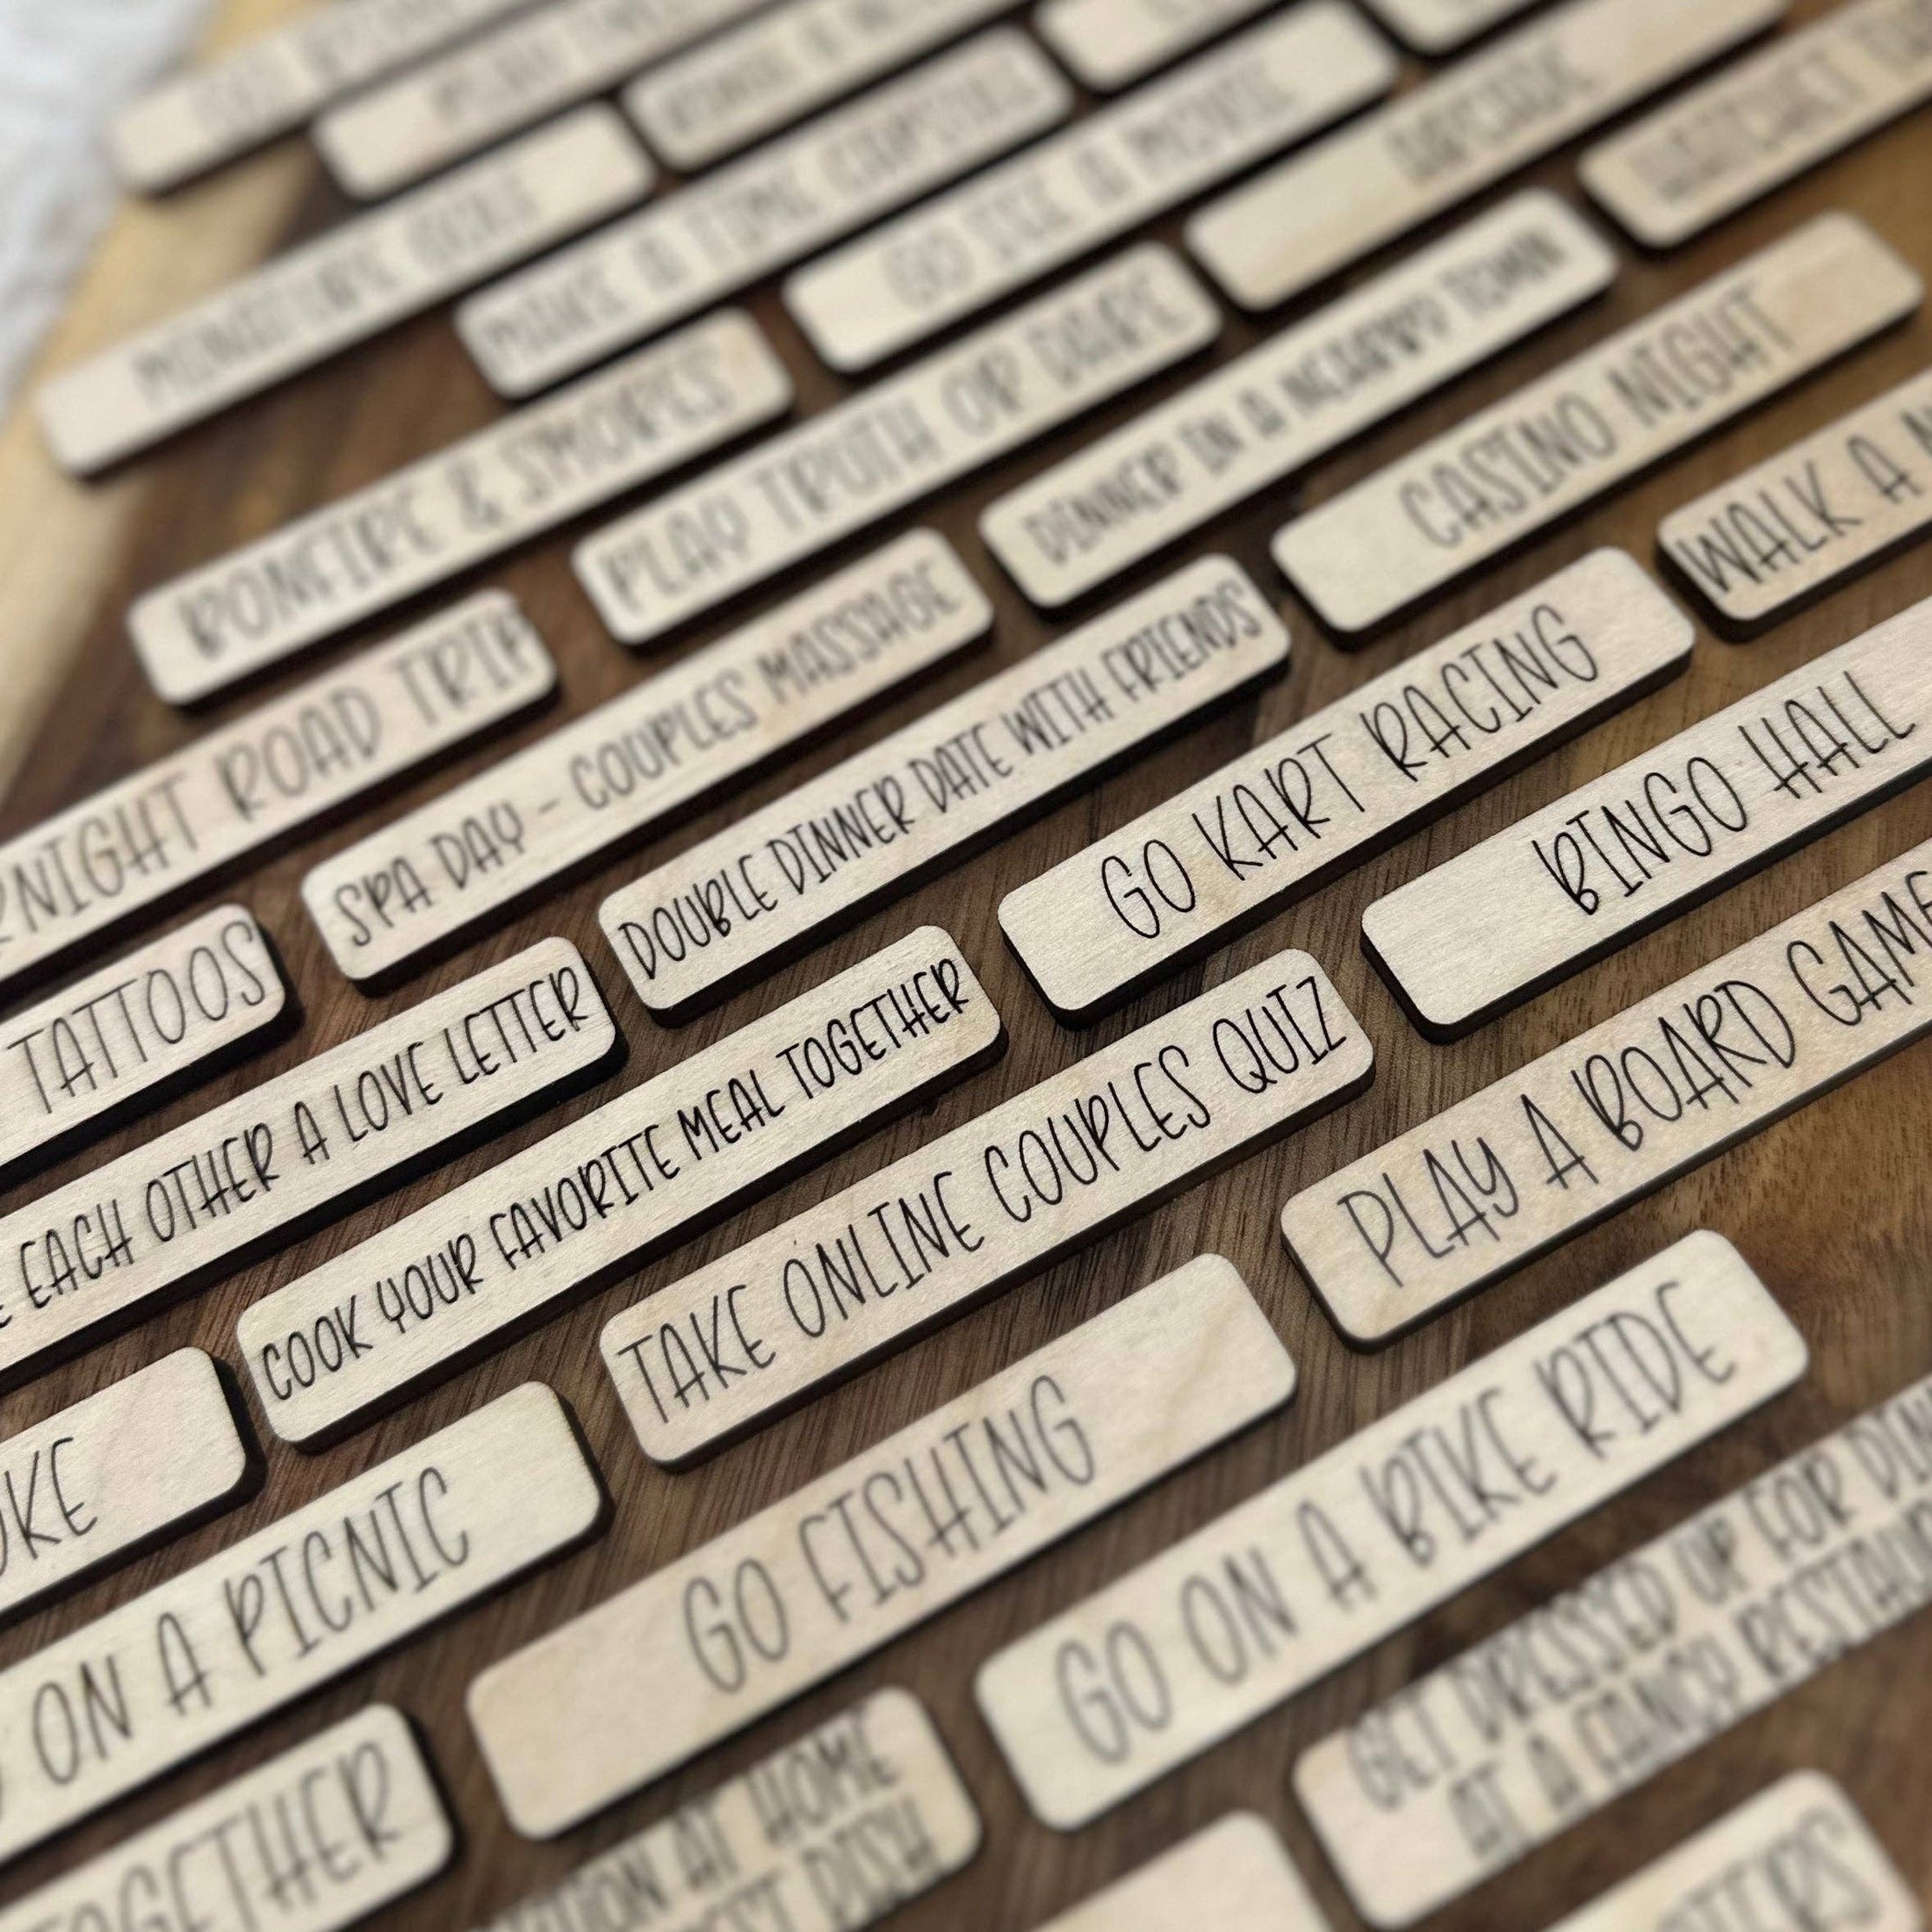 MINIATURE GOLF
MAKE A TIME CAPSULE
GO SEE A MOVIE
ARCADE
BONFIRE & SMORES
PLAY TRUTH OR DARE
DINNER IN A NEARBY TOWN
CASINO NIGHT
WALK A
RNIGHT ROAD TRIP
SPA DAY - COUPLES MASSAGE
DOUBLE DINNER DATE WITH FRIENDS
GO KART RACING
BINGO HALL
TATTOOS
EACH OTHER A LOVE LETTER
COOK YOUR FAVORITE MEAL TOGETHER
TAKE ONLINE COUPLES QUIZ
PLAY A BOARD GAME
OKE
ON A PICNIC
GO FISHING
GO ON A BIKE RIDE
GET DRESSED UP FOR DIN
AT A FANCY RESTAU
OGETHER
AT HOME
DISH